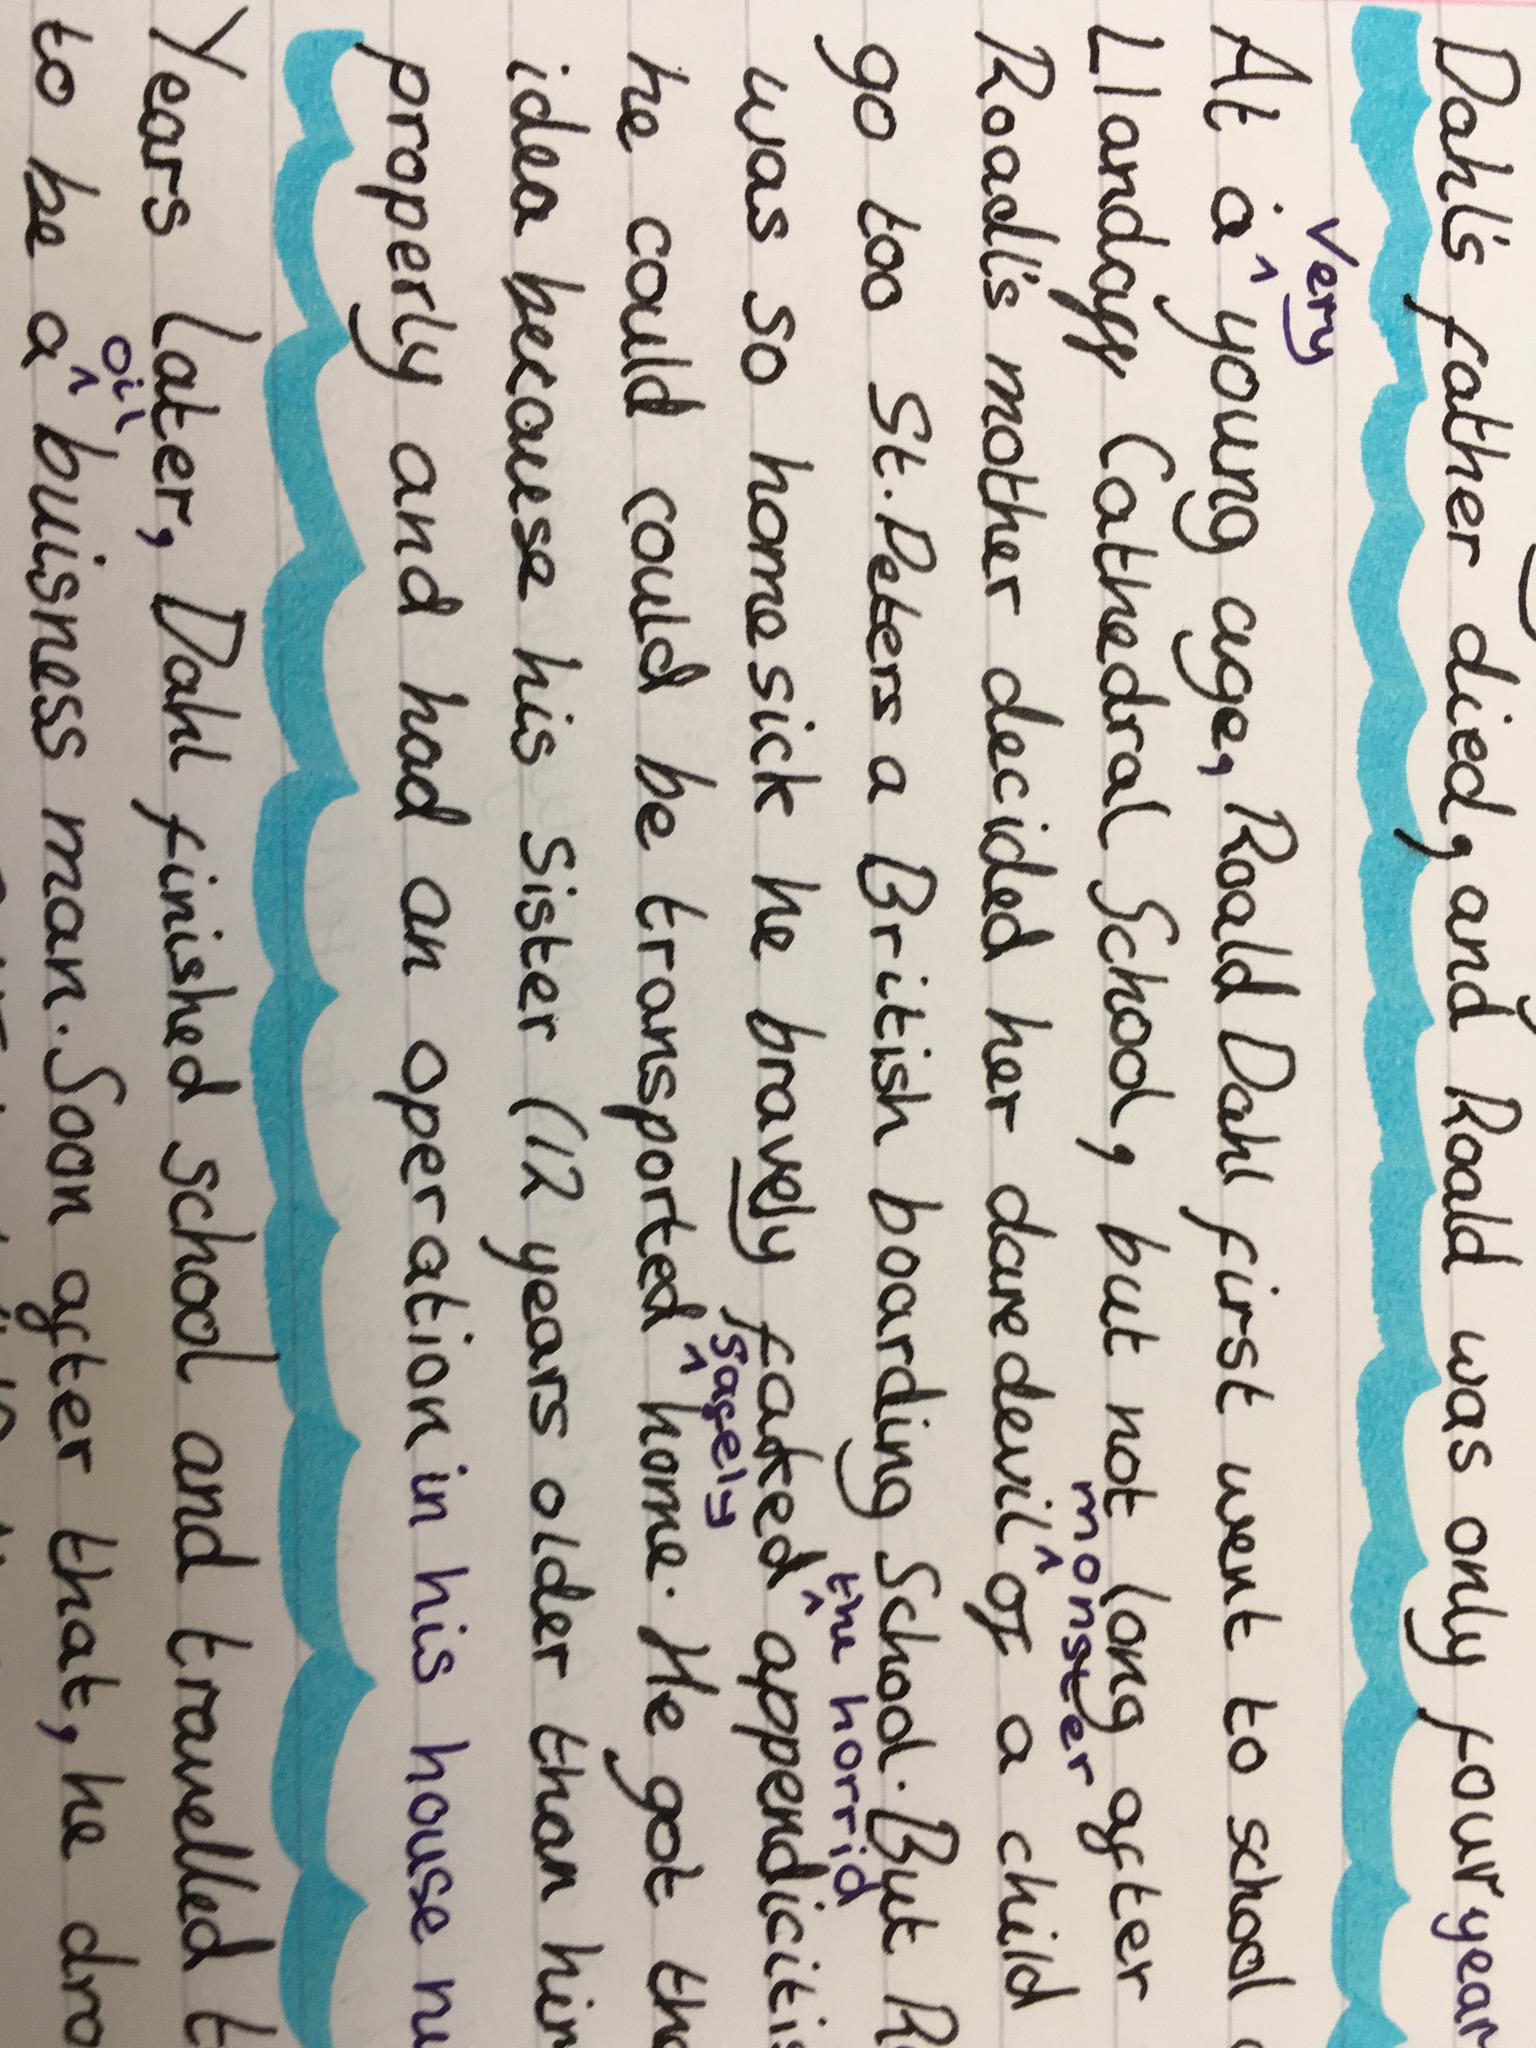 Dahl's father died, and Roald was only four year
very
At a ^ young age, Roald Dahl first went to school
Llandaff Cathedral School, but not long after
monster
Roadl's mother decided her daredevil ^ of a child
go too St. Peters a British boarding School. But R
the horrid
was so homesick he bravely faked ^ appendicitis
safely
he could could be transported ^ home. He got the
idea because his Sister (12 years older than him
properly and had an operation in his house nu
Years Later, Dahl finished School and travelled t
oil
to be a ^ buisness man. Soon after that, he dro